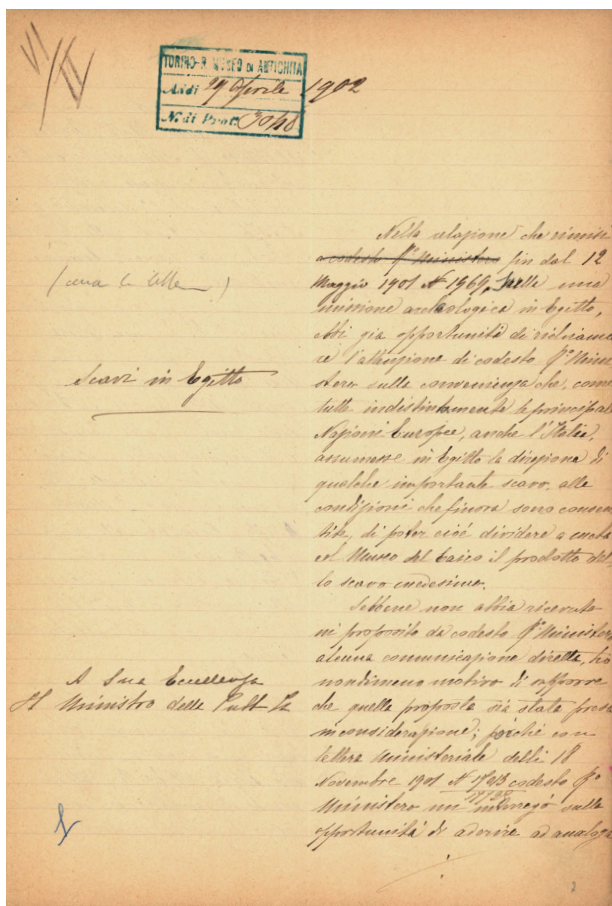 VI
TORINO - R. MUSEO DI ANTICHITÀ
Addì 29 Aprile 1902
N. di Prot. 3040
Nella relazione che rimisi
a codesto R.° Ministero fin dal 12
Maggio 1901 N. 1969, sulla una
missione archeologica in Egitto,
ebbi già opportunità di richiama
re l'attenzione di codesto R.° Mini
stero sulla convenienza che, come
tutte indistintamente le principali
Nazioni Europee, anche l'Italia,
assumesse in Egitto la direzione di
qualche importante scavo, alle
condizioni che finora sono consen
tite, di poter cioè dividere a metà
col Museo del Cairo il prodotto del
lo scavo medesimo.
Sebbene non abbia ricevuto
in proposito da codesto R.° Ministero
alcuna comunicazione diretta, ho
nondimeno motivo di supporre
che quella proposta sia stata presa
in considerazione; poichè con
lettera Ministeriale delli 18
Novembre 1901 N. codesto R.°
Ministero mi interrogò sulla
opportunità di aderire ad analoga
Scavi in Egitto
A Sua Eccellenza
Il Ministro della Pubb.